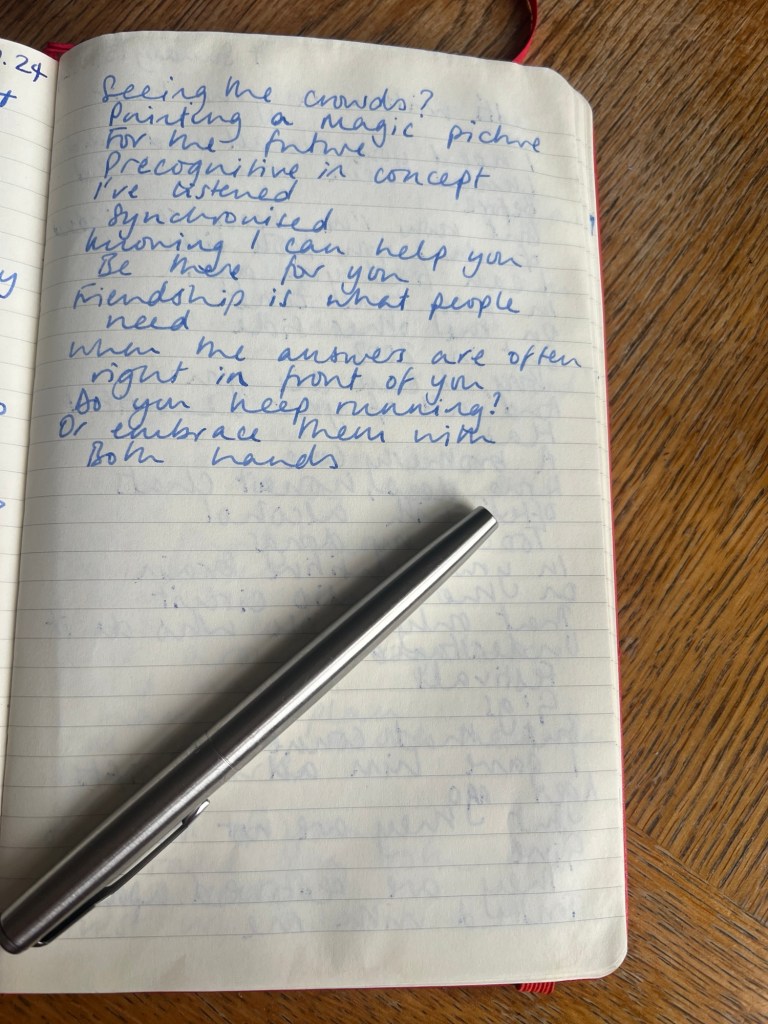 .24
Seeing the crowds?
Painting a magic picture
For the future
Precognitive in concept
I've listened
Synchronised
Knowing I can help you
Be there for you
Friendship is what people
need
When the answers are often
right in front of you
Do you keep running?
Or embrace them with
Both hands